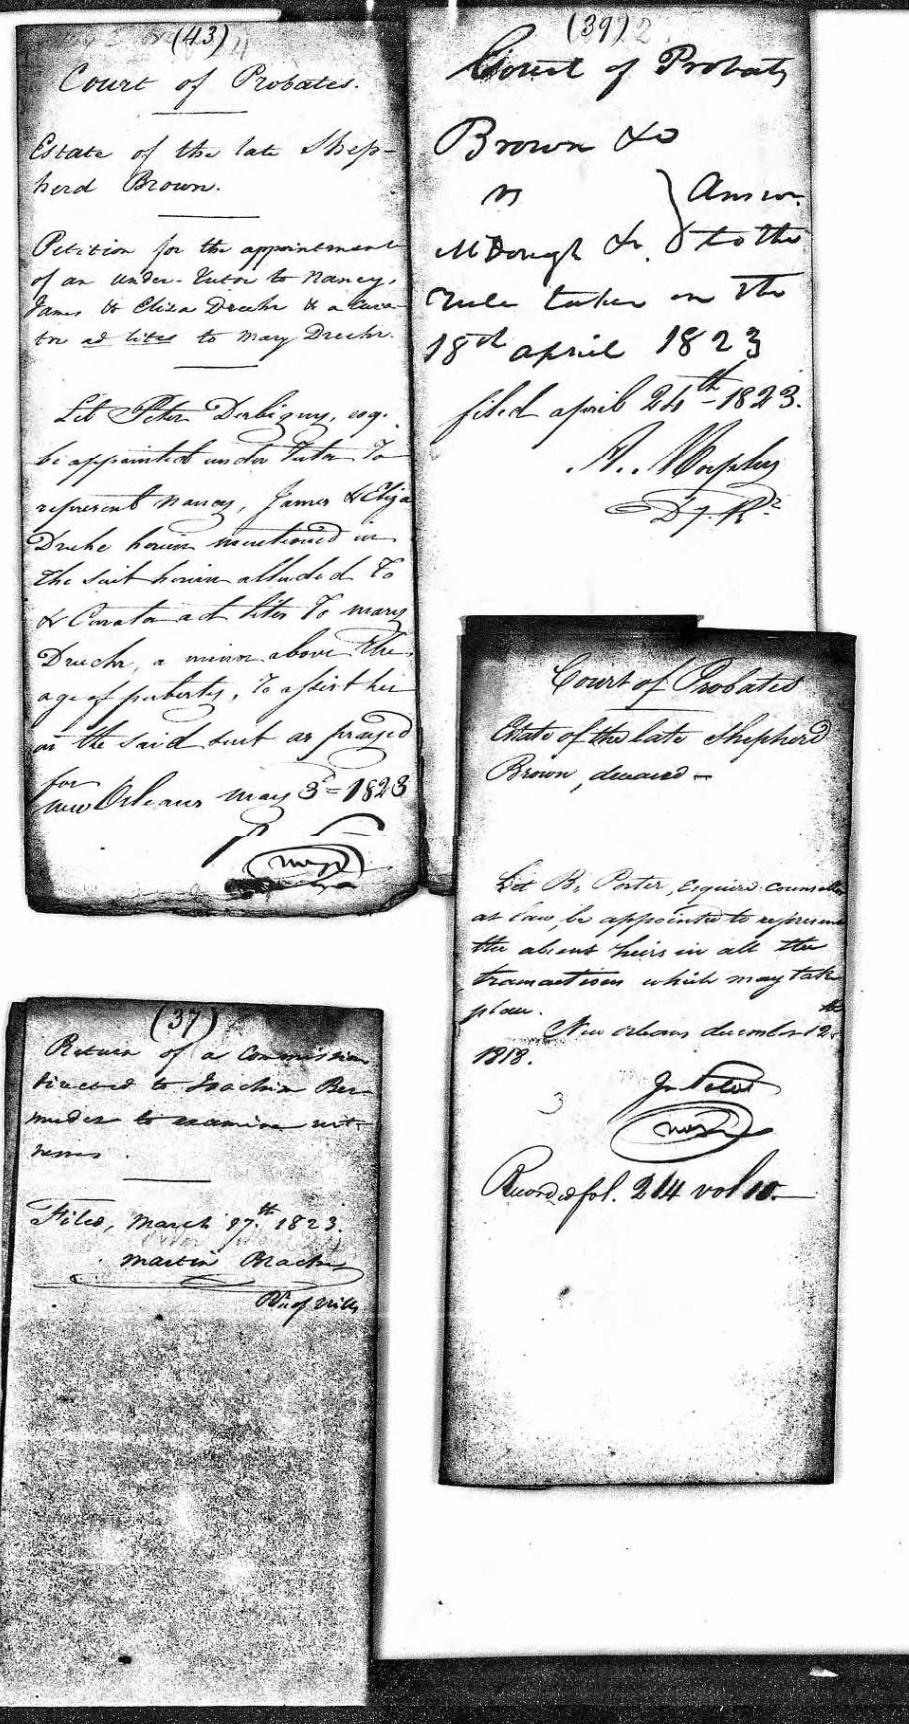 (43)
Court of Probates.
Estate of the late Shep-
herd Brown.
Petition for the appointment
of an under-tutor to Nancy,
James & Eliza Druhr & a cura-
tor ad lites to Mary Druhr.
Let Peter Derbigny, esq.
be appointed under tutor To
represent Nancy, James & Eliza
Druhr herein mentioned in
the suit herein alluded To
& Curator ad lites To mary
Druhr, a minor above the
age of puberty, To assist her
in the said suit as prayed
for
new Orleans may 3d = 1823
(39)
Court of Probats
Brown &o
vs
McDonogh &c. } Answr.
to the
rule taken on the
18th april 1823
filed april 24th - 1823.
A. Morphy
Dy. Rr
(37)
Return of a Commission
directed to Joachim Ber-
mudez to examine wit-
nesses.
Filed, March 27th 1823.
Martin
of Wills
Court of Probates
Estate of the late Shepherd
Brown, deceased -
Let B. Porter, Esquire counsellor
at Law, be appointed to represent
the absent heirs in all the
transactions which may take
place.
New Orleans december 12th
1818.
Js. Pitot
Recorded fol. 214 vol 10.